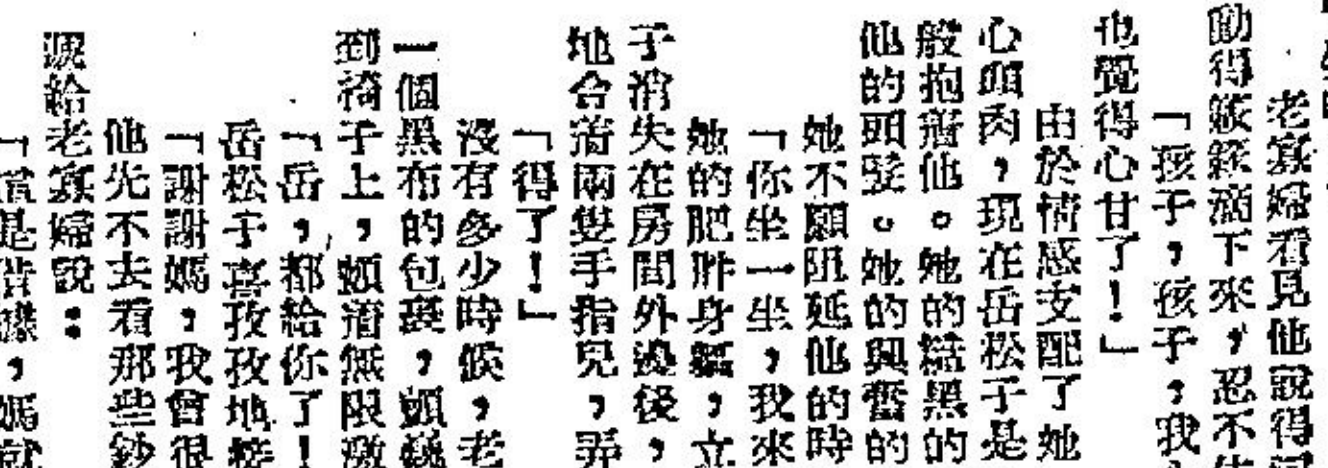 老寡婦看見他說得
動得簌簌滴下來，忍不住
「孩子，孩子，我
也覺得心甘了！」
由於情感支配了她
心頭肉，現在岳松子是
般抱着他。她的黑的
他的頭髮。她的興奮的
她不願阻延他的時
「你坐一坐，我來
她的肥胖身軀，立
子消失在房間外邊後，
地合着兩隻手指兒，弄
「得了！」
沒有多少時候，老
一個黑布的包裹，顫巍
到椅子上，頗着無限激
「岳，都給你了！
岳松子喜孜孜地接
「謝謝媽，我曾很
他先不去看那些鈔
淚給老寡婦說：
「是，媽就